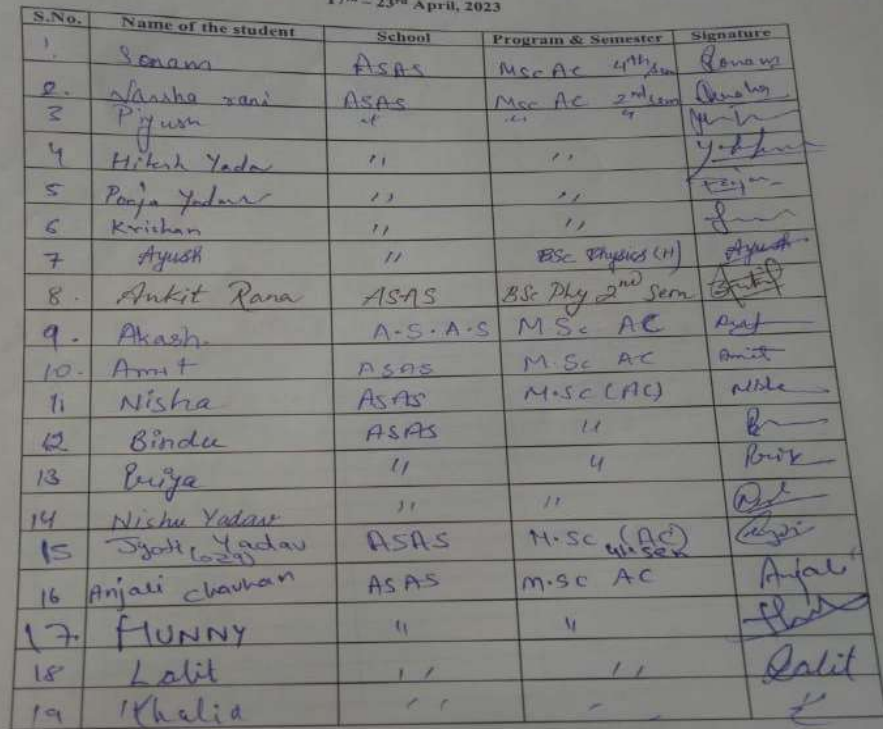 17th – 23rd April, 2023
S.No. Name of the student School Program & Semester Signature
1. Sonam ASAS MSc AC 4th Sem Sonam
2. Varsha rani ASAS Msc AC 2nd sem
3 Piyush " " "
4 Hitesh Yadav " "
5 Pooja Yadav " "
6 Krishan " "
7 Ayush " BSc Physics (H) Ayush
8. Ankit Rana ASAS BSc Phy 2nd Sem Ankit
9. Akash. A.S.A.S MSc AC
10. Amit ASAS M.Sc AC Amit
11 Nisha ASAS M.SC (AC) Nisha
12 Bindu ASAS "
13 Priya " "
14 Nishu Yadav " "
15 Jyoti Yadav ASAS M.SC (AC)
(029) 4th sem
16 Anjali chauhan ASAS M.SC AC Anjali
17. HUNNY " "
18 Lalit " " Lalit
19 Khalid " "